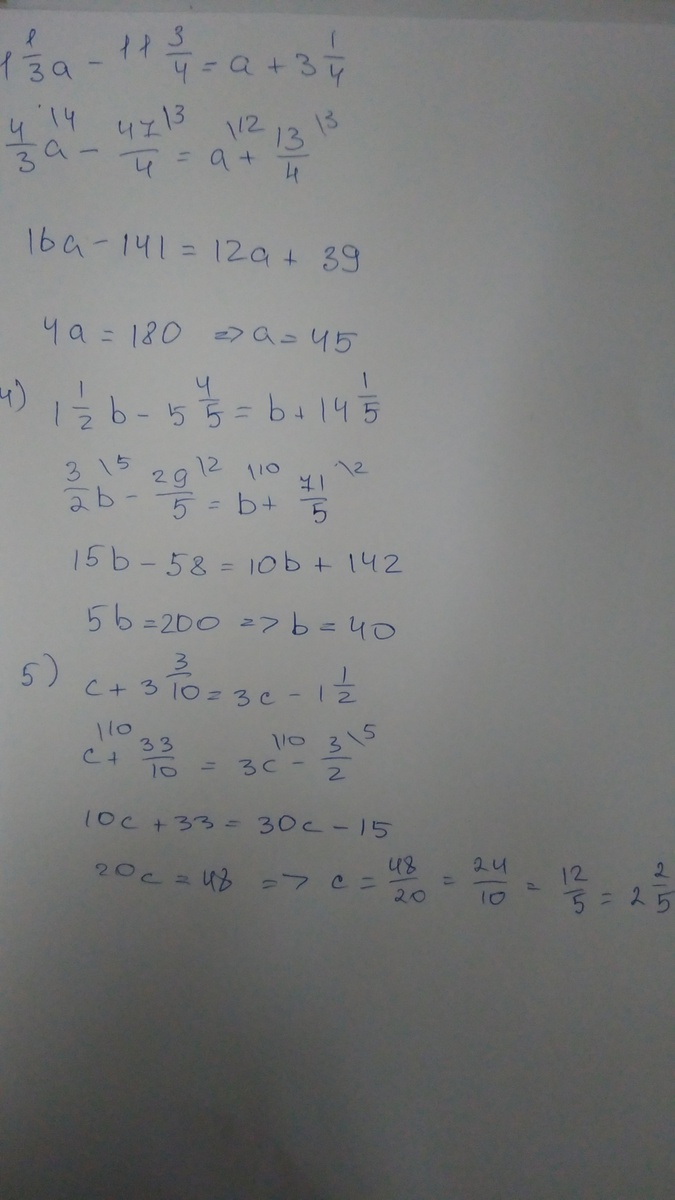 1 1/3 a - 11 3/4 = a + 3 1/4
4/3 a \4 - 47/4 \3 = a \12 + 13/4 \3
16a - 141 = 12a + 39
4a = 180 => a = 45
4) 1 1/2 b - 5 4/5 = b + 14 1/5
3/2 \5 b - 29/5 \2 = b \10 + 71/5 \2
15b - 58 = 10b + 142
5b = 200 => b = 40
5) c + 3 3/10 = 3c - 1 1/2
c \10 + 33/10 = 3c \10 - 3/2 \5
10c + 33 = 30c - 15
20c = 48 => c = 48/20 = 24/10 = 12/5 = 2 2/5